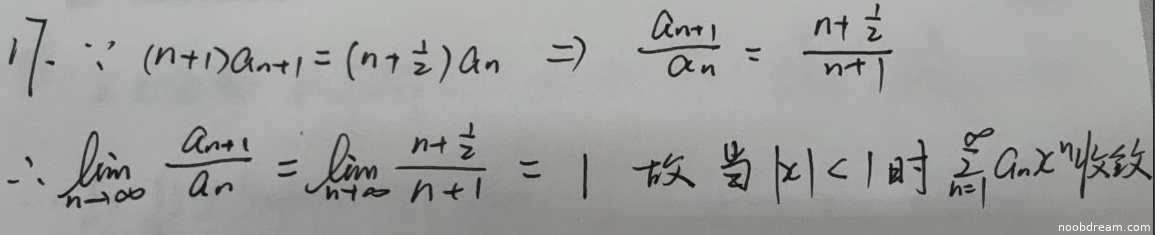 17. ∵ (n+1)aₙ₊₁ = (n+½)aₙ ⇒ aₙ₊₁/aₙ = (n+½)/(n+1)
∴ lim_{n→∞} aₙ₊₁/aₙ = lim_{n→∞} (n+½)/(n+1) = 1 故当 |x|<1时 ∑_{n=1}^{∞} aₙxⁿ收敛
noobdream.com